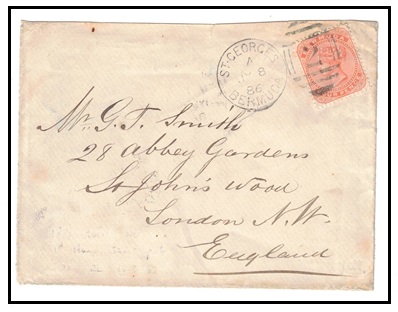 ST. GEORGE'S
A
8
86
BERMUDA
Mr G. F. Smith
28 Abbey Gardens
St John's Wood
London N.W.
England